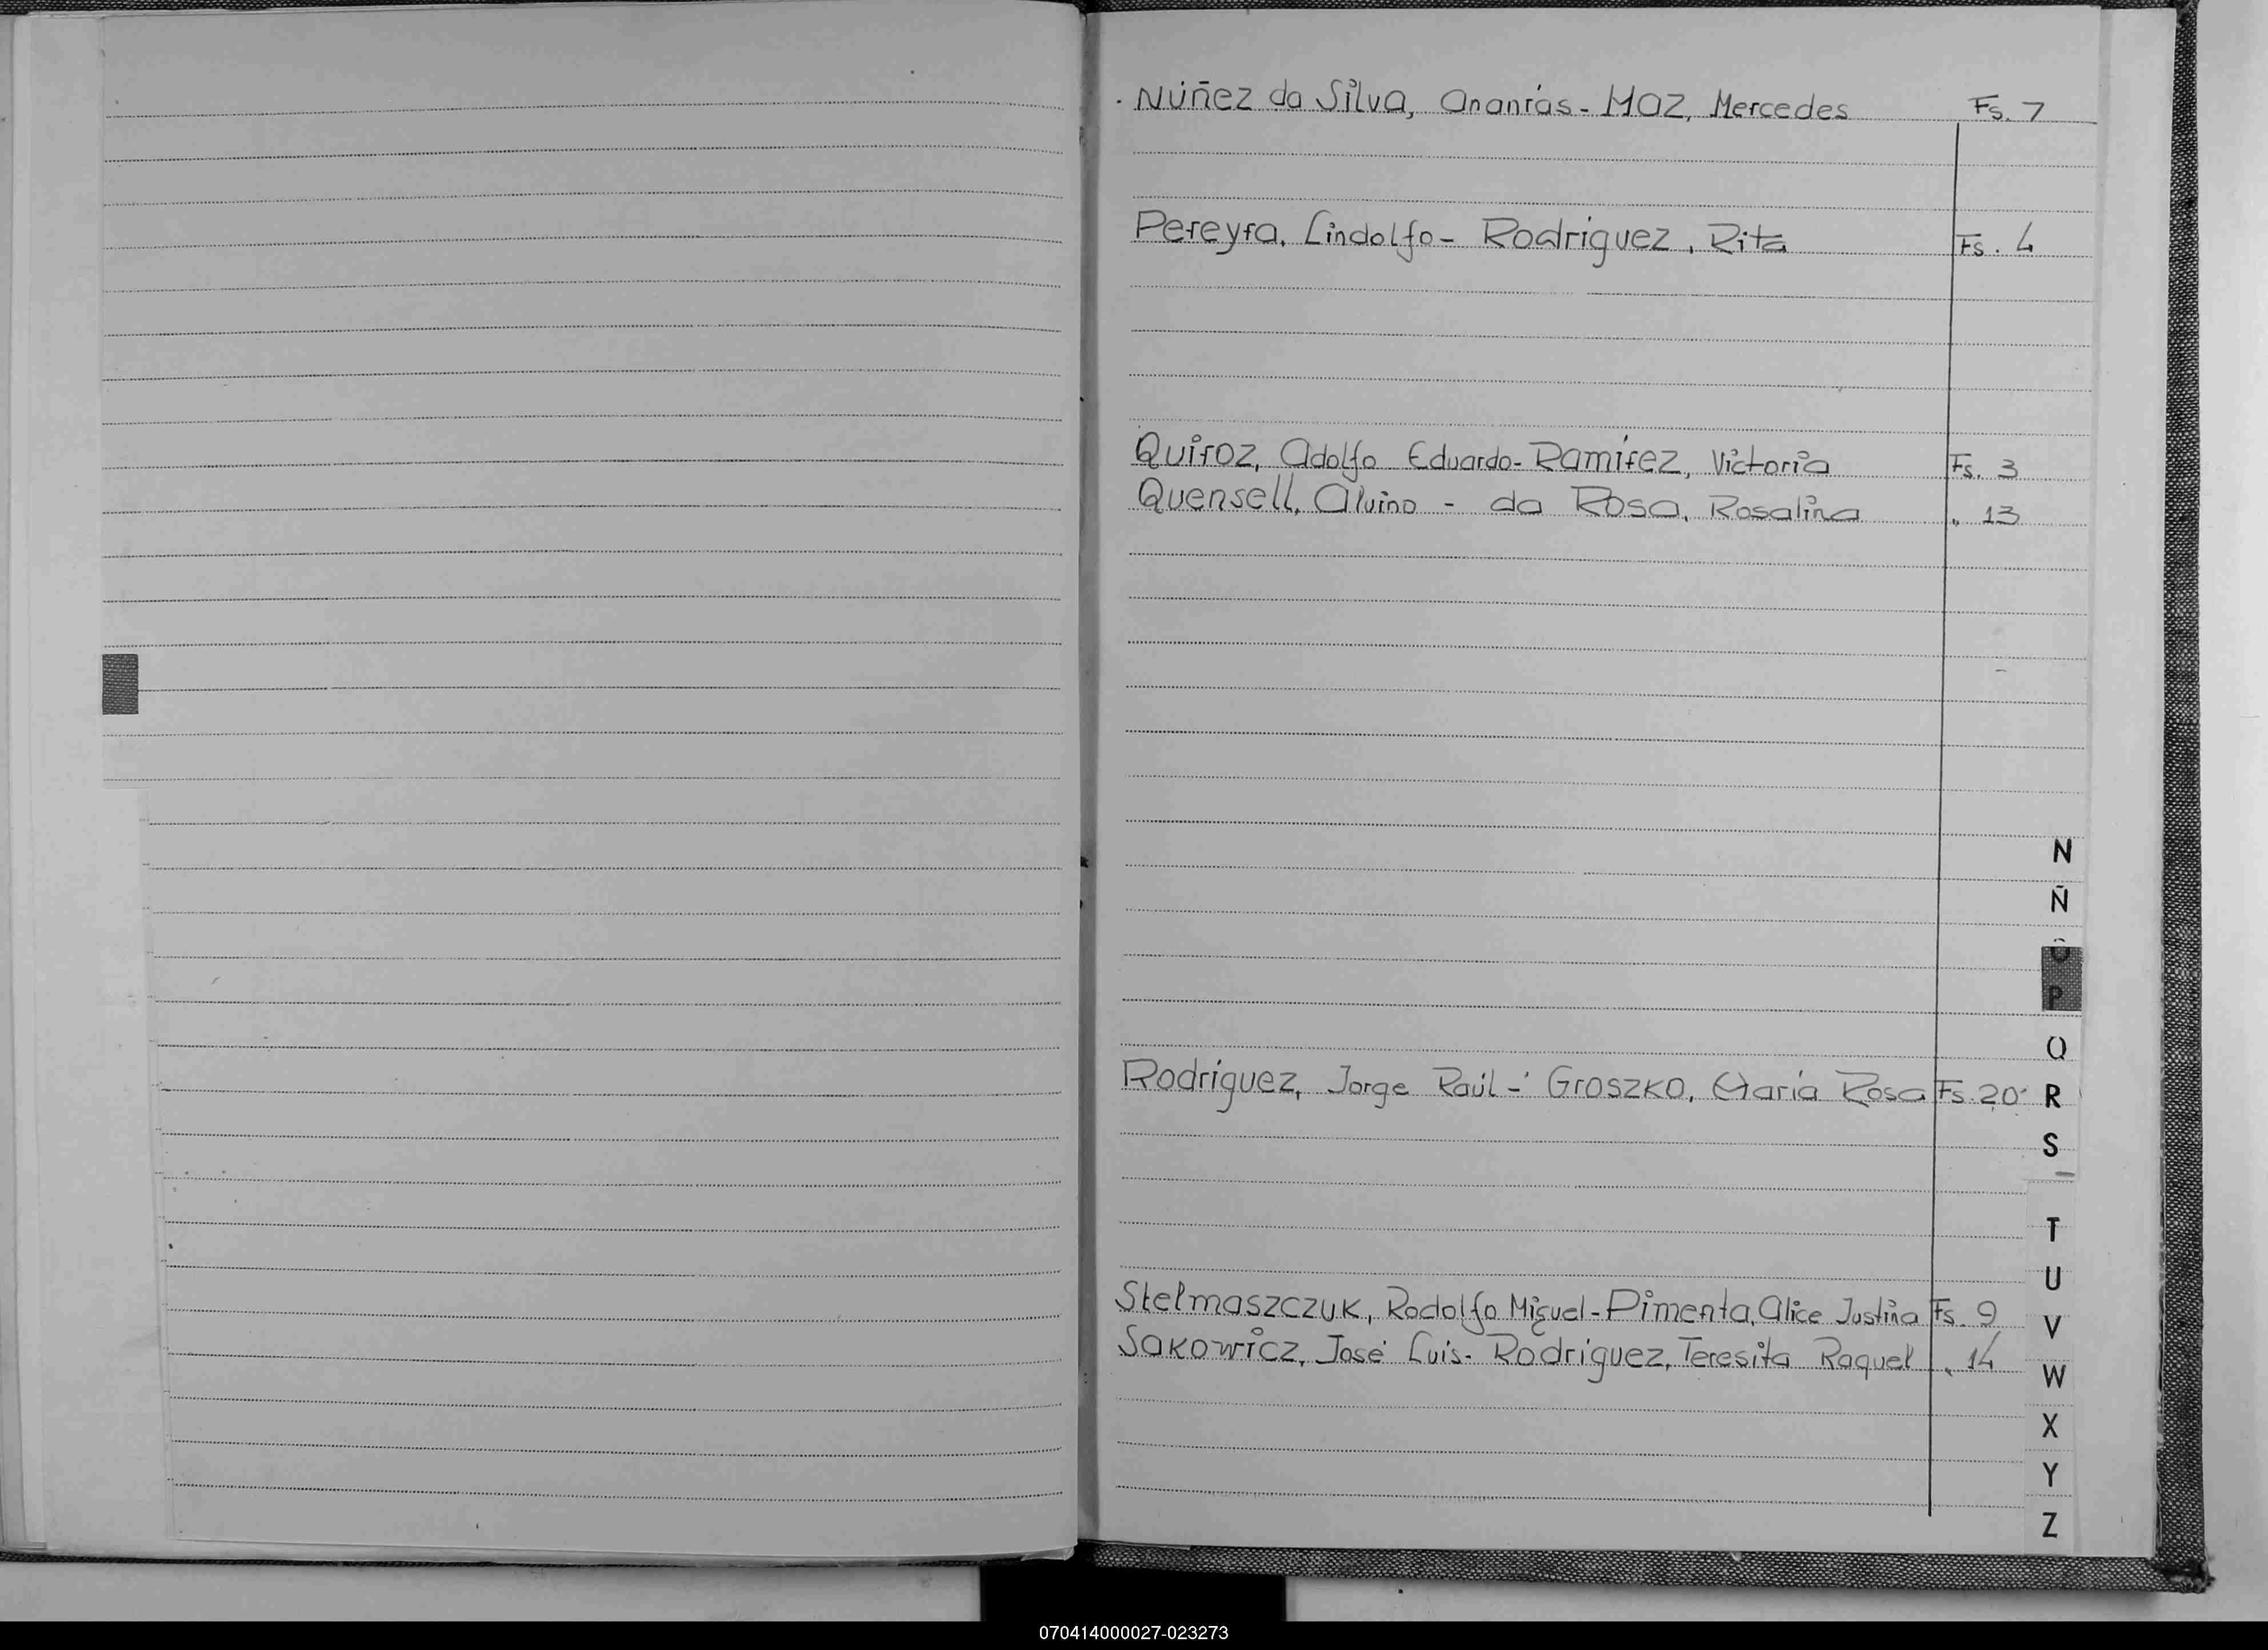 Núñez da Silva, Ananías - MAZ, Mercedes Fs. 7
Pereyra, Lindolfo - Rodriguez, Rita Fs. 4
Quiroz, Adolfo Eduardo - Ramírez, Victoria Fs. 3
Quensell, Alvino - da Rosa, Rosalina " 13
N
Ñ
O
P
Q
Rodríguez, Jorge Raúl - Groszko, María Rosa Fs. 20
R
S
T
U
Stelmaszczuk, Rodolfo Miguel - Pimenta, Alice Justina Fs. 9
V
Sakowicz, José Luis - Rodríguez, Teresita Raquel " 14
W
X
Y
Z
070414000027-023273